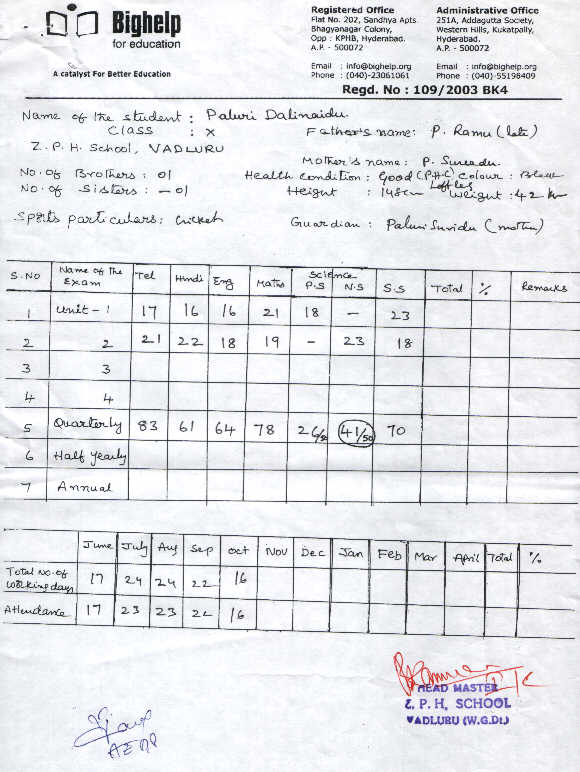 Bighelp
for education
A catalyst For Better Education
Registered Office
Flat No. 202, Sandhya Apts.
Bhagyanagar Colony,
Opp : KPHB, Hyderabad.
A.P. - 500072
Email : info@bighelp.org
Phone : (040)-23061061
Administrative Office
251A, Addagutta Society,
Western Hills, Kukatpally,
Hyderabad.
A.P. - 500072
Email : info@bighelp.org
Phone : (040)-55198409
Regd. No : 109/2003 BK4
Name of the student : Paluri Dalinaidu
Class : X Father's name: P. Ramu (late)
Z. P. H. School, VADLURU
Mother's name : P. Sureedu
No. of Brothers : 01 Health condition : Good (P.H.C) Colour : Black
No. of Sisters : - 01 Height : 148cm Weight : 42
Sports particulars : Cricket Guardian : Paluri Suridu (mother)
S.NO Name of the Exam Tel Hindi Eng Maths Science P.S N.S S.S Total % Remarks
1 Unit - 1 17 16 16 21 18 - 23
2 2 21 22 18 19 - 23 18
3 3
4 4
5 Quarterly 83 61 64 78 26/50 41/50 70
6 Half Yearly
7 Annual
June July Aug Sep Oct Nov Dec Jan Feb Mar April Total %
Total No. of working days 17 24 24 22 16
Attendance 17 23 23 22 16
HEAD MASTER
Z. P. H, SCHOOL
VADLURU (W.G.Dt.)